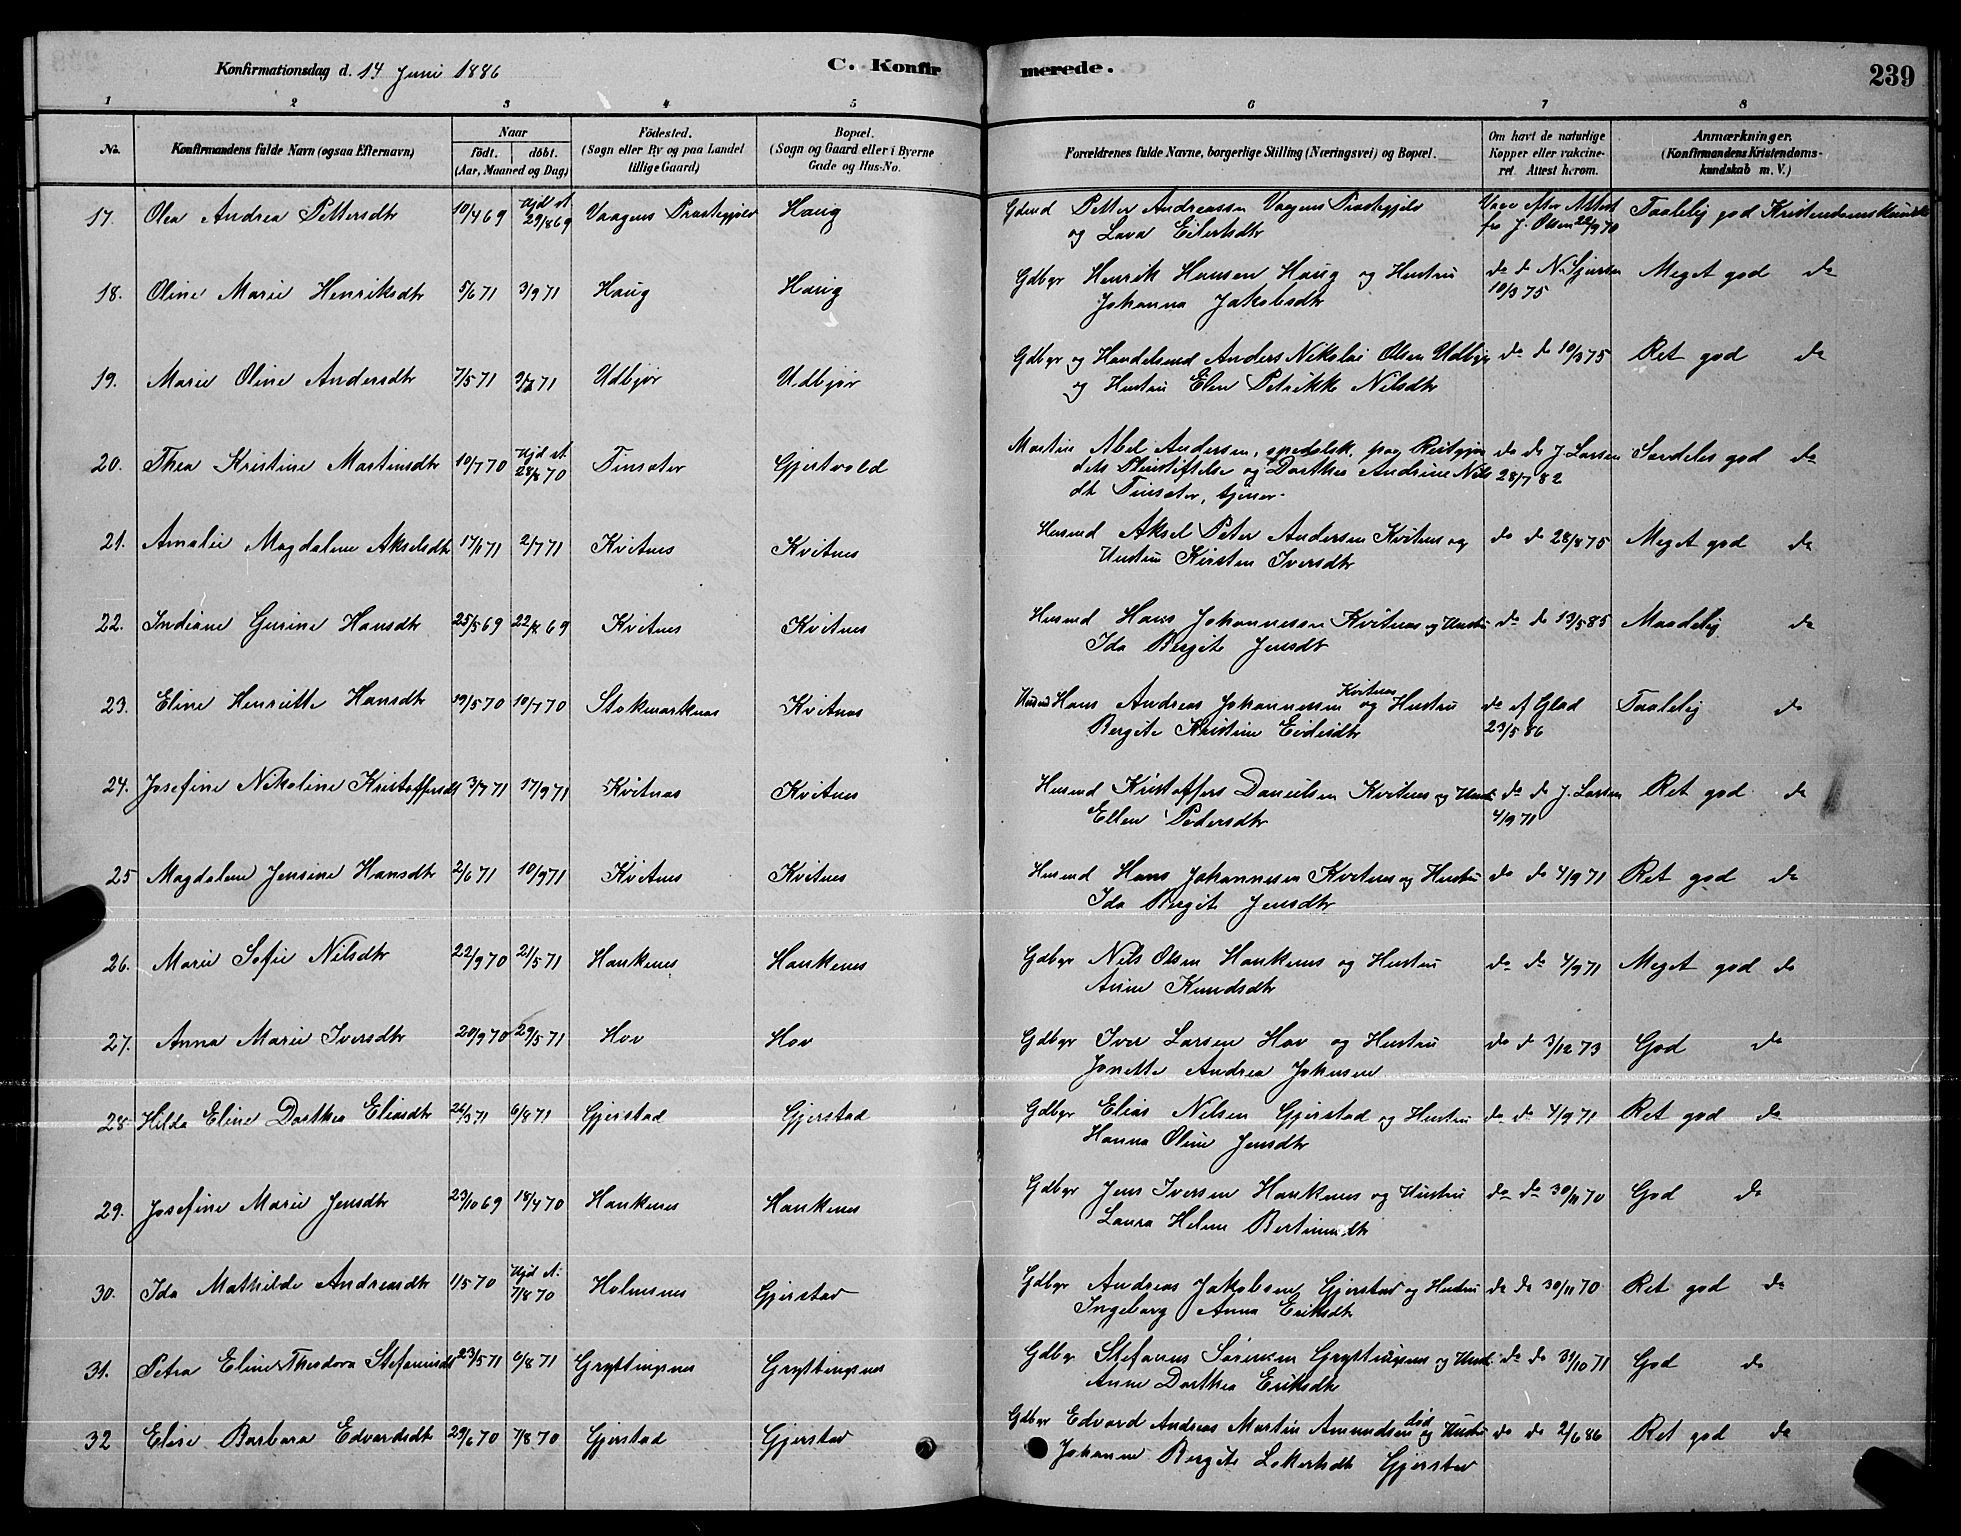 Konfirmationsdag d. 14 Juni 1886
C. Konfirmerede.
239
1 2 3 4 5 6 7 8
No. Konfirmandens fulde Navn (ogsaa Efternavn) Naar født. døbt. (Aar, Maaned og Dag) Födested. (Sogn eller By og paa Landet tillige Gaard) Bopæl. (Sogn og Gaard eller i Byerne Gade og Hus-No. Forældrenes fulde Navne, borgerlige Stilling (Næringsvei) og Bopæl. Om havt de naturlige Kopper eller vakcineret. Attest herom. Anmærkninger. (Konfirmandens Kristendomskundskab m. V.)
17. Olea Andrea Pettersdtr 10/4 69 Hjd st 29/8 69 Vaagens Præstegjeld Haug Gdmd Petter Andreassen Vaagens Præstegjeld
og Lava Eilertsdtr Vacc efter Attest fra J. Olsen 22/9 70 Taalelig god Kristendomskundsk
18. Oline Marie Henriksdtr 5/6 71 3/9 71 Haug Haug Gdbgr Henrik Hansen Haug og Hustru
Johanna Jakobsdtr do do N. Sjursen 10/3 75 Meget god do
19. Marie Oline Andersdtr 7/5 71 71 Udbjør Udbjør Gdbgr og Handelsmd Anders Nikolai Olsen Udbjør
og Hustru Elen Petrikke Nilsdtr do do 10/3 75 Ret god do
20. Thea Kristine Martinsdtr 10/7 70 Hjd st 28/8 70 Finsæter Gjertvold Martin Abel Andersen, spedalsk, paa Reitgjer
dets Pleiestiftelse og Dorthea Andrine Nils
dt Finsæter, tjener do do J. Larsen 28/7 82 Særdeles god do
21. Amalie Magdalene Akselsdtr 17/1 71 2/7 71 Kvitnes Kvitnes Husmd Aksel Peter Andersen Kvitnes og
Hustru Kirsten Iversdtr do do 28/8 75 Meget god do
22. Indiane Gurine Hansdtr 25/5 69 22/8 69 Kvitnes Kvitnes Husmd Hans Johannessen Kvitnes og Hustru
Ida Bergite Jensdtr do do 13/5 85 Maadelig do
23. Eline Henriette Hansdtr 19/5 70 10/7 70 Stokmarknes Kvitnes Husmd Hans Andreas Johannessen Kvitnes og Hustru
Bergite Kristine Eidisdtr do af Glad 23/5 86 Taalelig do
24. Josefine Nikoline Kristoffersdt 3/7 71 17/9 71 Kvitnes Kvitnes Husmd Kristoffers Danielsen Kvitnes og Hust.
Ellen Pedersdtr do do J. Larsen 4/9 71 Ret god do
25 Magdalene Jensine Hansdtr 2/6 71 10/9 71 Kvitnes Kvitnes Husmd Hans Johannesen Kvitnes og Hustru
Ida Bergite Jensdtr do do 4/9 71 Ret god do
26. Marie Sofie Nilsdtr 22/9 70 21/5 71 Haukenes Haukenes Gdbgr Nils Olsen Haukenes og Hustru
Anne Knudsdtr do do 4/9 71 Meget god do
27. Anna Marie Iversdtr 20/9 70 29/5 71 Hov Hov Gdbgr Iver Larsen Hov og Hustru
Jonette Andrea Johnsen do do 3/12 73 God do
28 Hilda Eline Dorthea Eliasdtr 26/3 71 6/8 71 Gjerstad Gjerstad Gdbgr Elias Nilsen Gjerstad og Hustru
Hanna Oline Jensdtr do do 4/9 71 Ret god do
29. Josefine Marie Jensdtr 23/10 69 18/4 70 Haukenes Haukenes Gdbgr Jens Iversen Haukenes og Hustru
Laura Helene do do 30/11 70 God do
30. Ida Mathilde Andreasdtr 1/5 70 Hjd st. 7/8 70 Holmsnes Gjerstad Gdbgr Andreas Jakobsen Gjerstad og Hustru
Ingeborg Anna Eriksdtr do do 30/11 70 Ret god do
31. Petra Eline Theodora Stefanusdt 23/5 71 6/8 71 Gryttingsnes Gryttingsnes Gdbgr Stefanus Sørensen Gryttingsnes og Hust.
Anne Dorthea Eriksdtr do do 31/10 71 God do
32 Elise Barbara Edvardsdtr 29/6 70 7/8 70 Gjerstad Gjerstad Gdbgr Edvard Andreas Martin Amundsen død og Hustru
Johanne Bergite Gjerstad do do 2/6 86 Ret god do